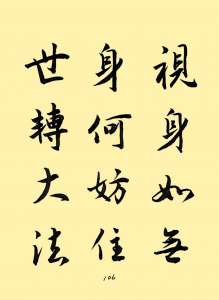 視身如無
身何妨住
世轉大法
106